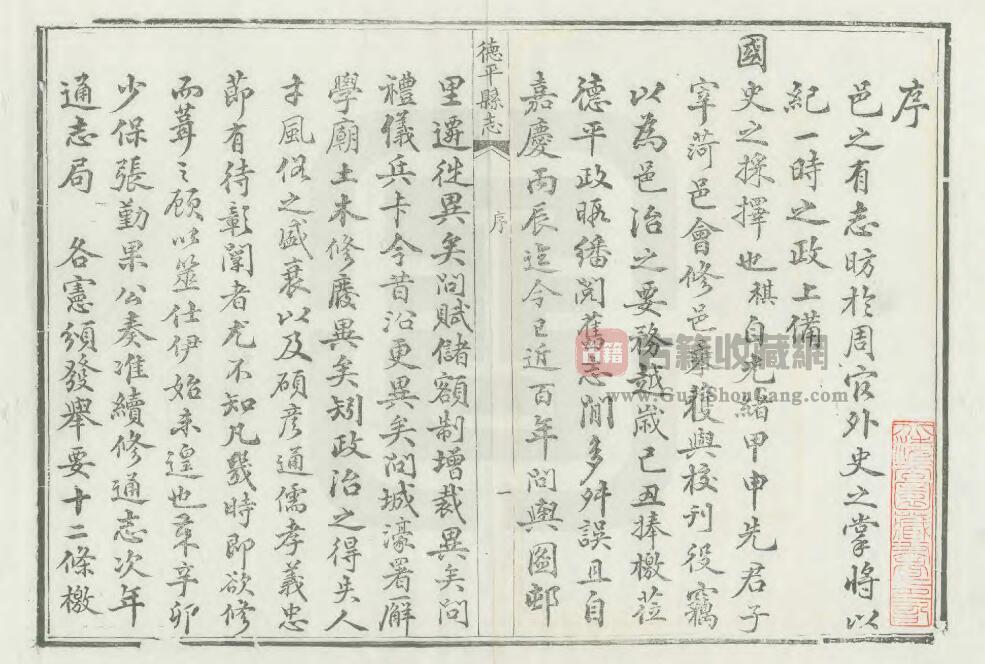 序
邑之有志昉於周官外史之掌將以
紀一時之政上備
國史之採擇也棋自光緒甲申先君子
宰菏邑會修邑乘獲與校刊役竊
以為邑治之要務越歲己丑捧檄莅
德平政暇繙閱舊志間多舛誤且自
嘉慶丙辰迄今已近百年問輿圖邨
德平縣志
序
一
里遷徙異矣問賦儲額制增裁異矣問
禮儀兵卡今昔沿更異矣問城濠署廨
學廟土木修廢異矣矧政治之得失人
才風俗之盛衰以及碩彥通儒孝義忠
節有待彰闡者尤不知凡幾時即欲修
而葺之顧以筮仕伊始未遑也辛卯
少保張勤果公奏准續修通志次年
通志局 各憲頒發舉要十二條檄
古籍
古籍收藏網
www.GuJiShouCang.com